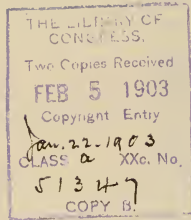 THE LIBRARY OF
CONGRESS.
Two Copies Received
FEB 5 1903
Copyright Entry
Jan. 22-1903
CLASS a XXc. No.
51347
COPY B.